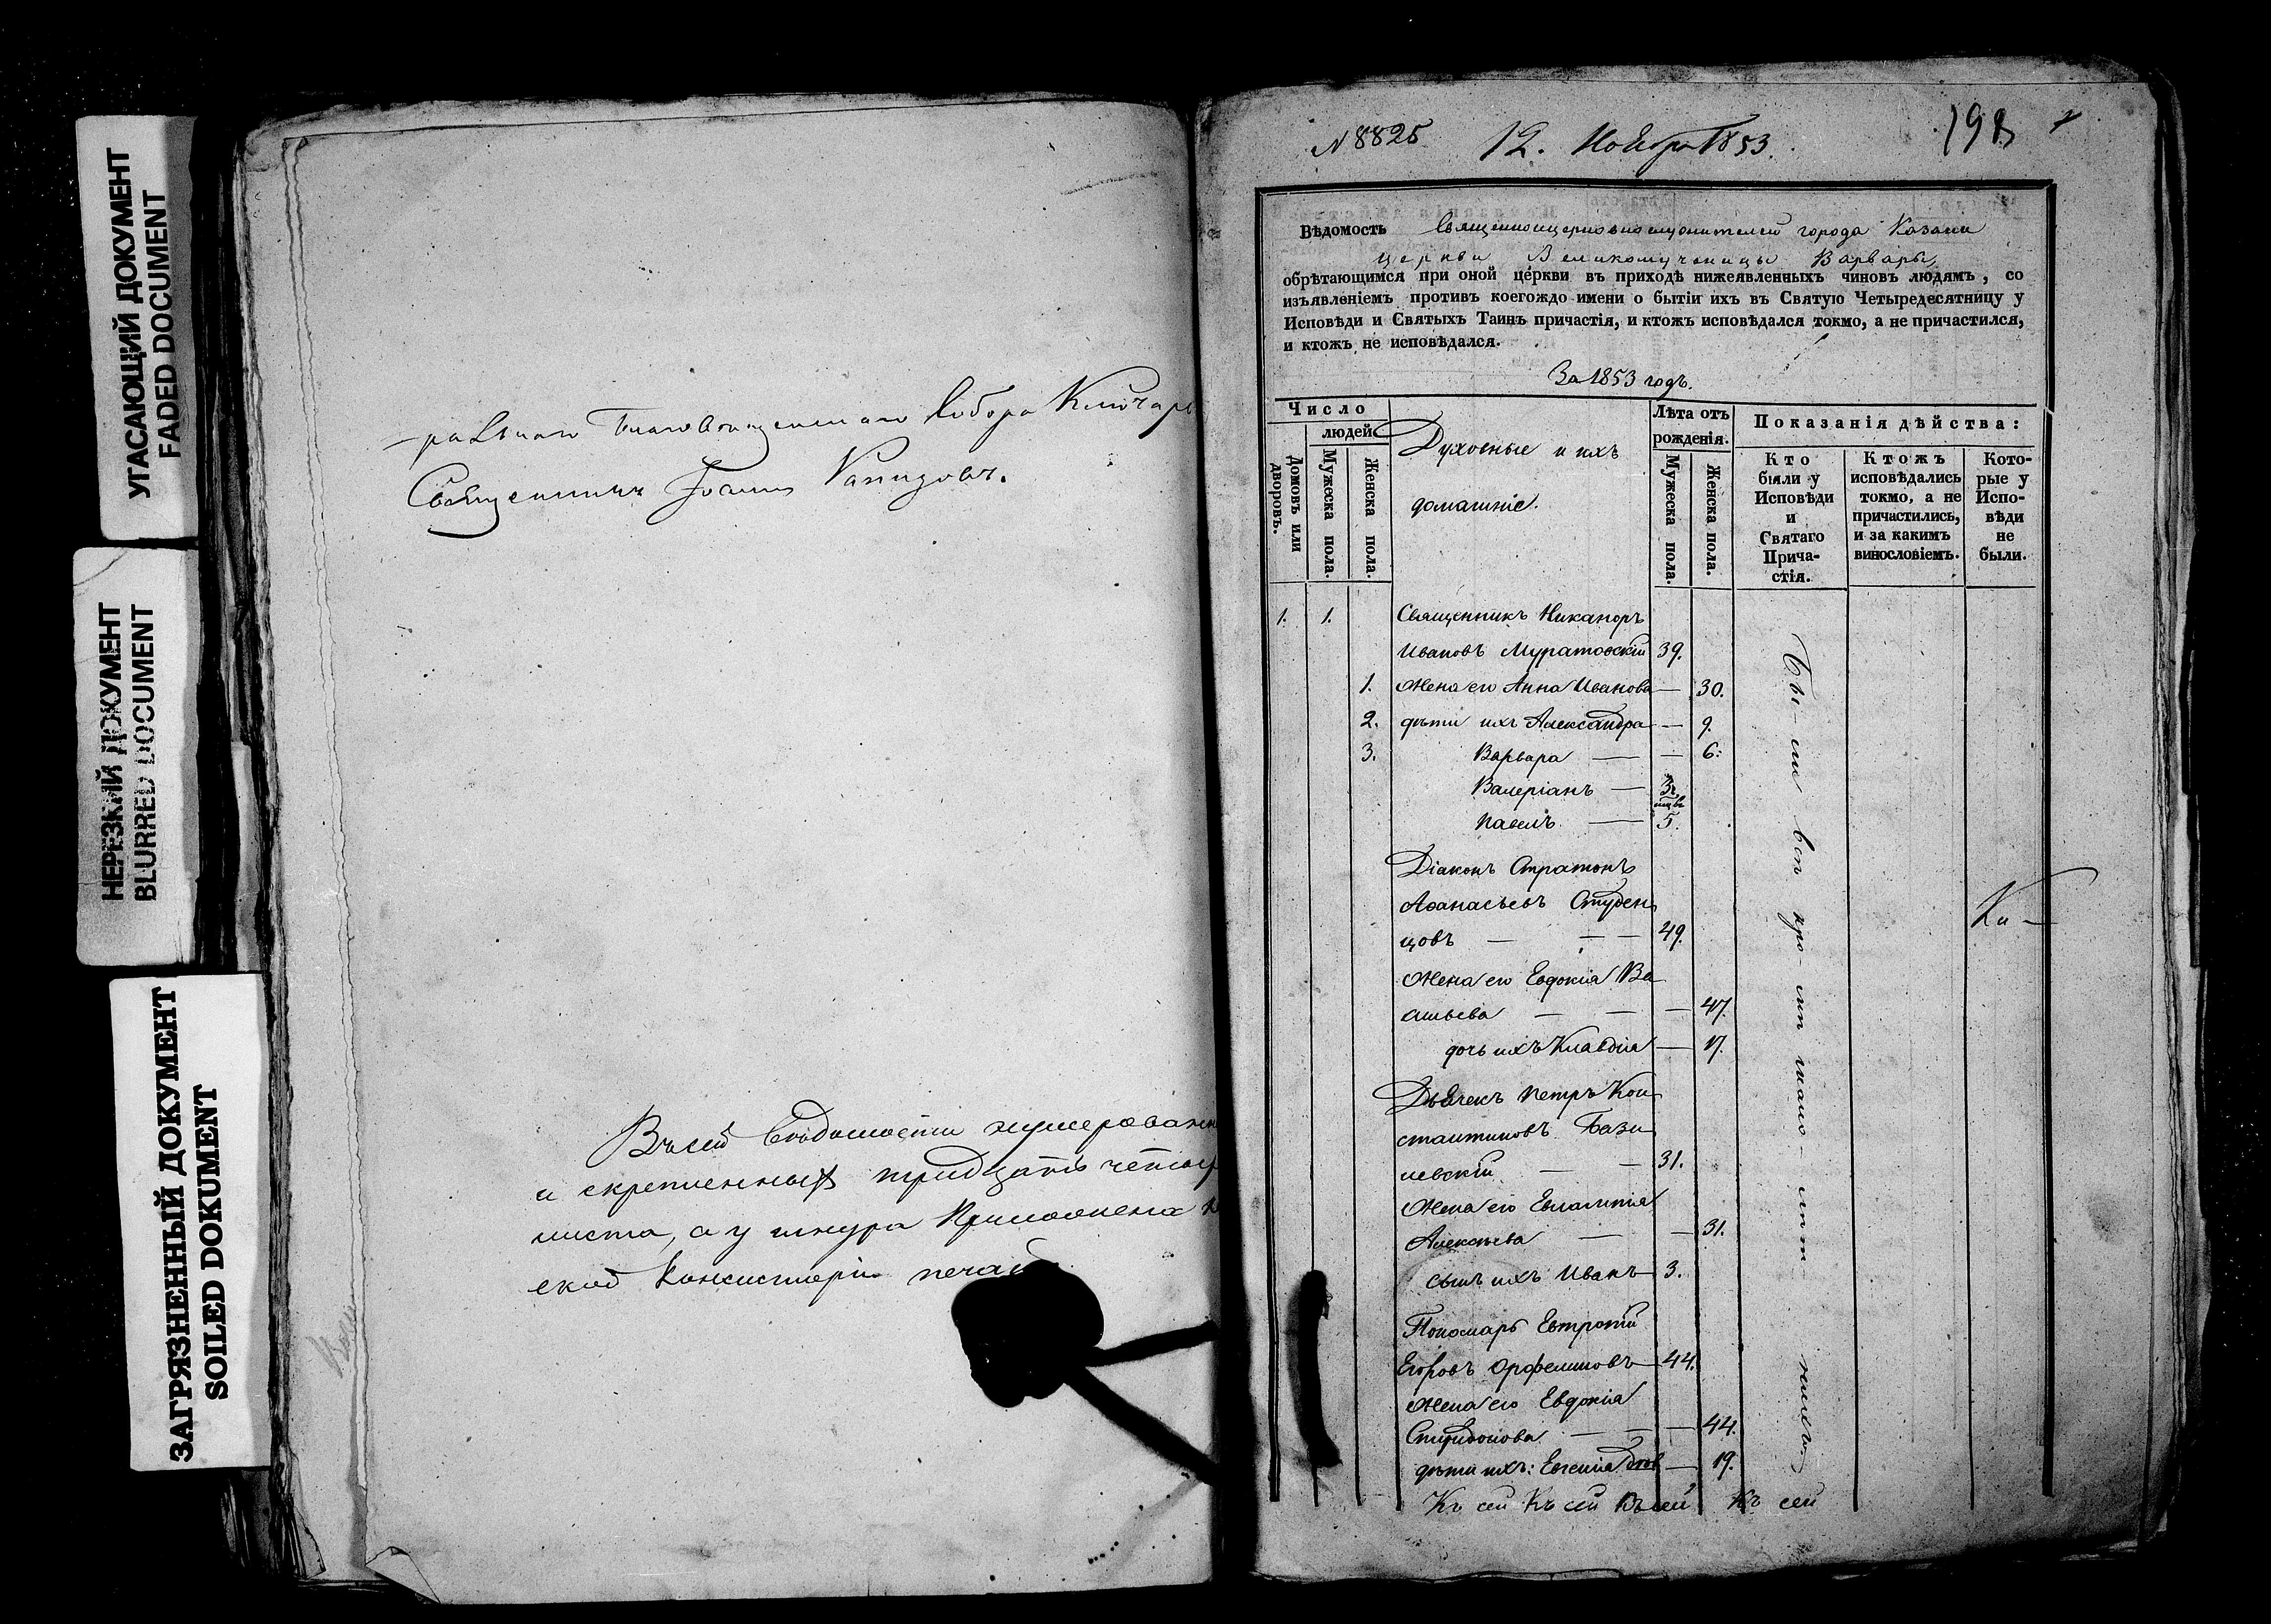 УГАСАЮЩИЙ ДОКУМЕНТ
FADED DOCUMENT
НЕРЕЗКИЙ ДОКУМЕНТ
BLURRED DOCUMENT
ЗАГРЯЗНЕННЫЙ ДОКУМЕНТ
SOILED DOKUMENT
-ральнаго Благовещенскаго Собора Ключарь
Священникъ Іоаннъ
Въ сей Ведомости нумерован
и скрепленныхъ тридцать четыр
листа, а у шнура Приложена
ской Консисторіи печать
N 8825 12. Ноября 1853. 198
Вѣдомость Священноцерковнослужителей города Казани
церкви Великомученицы Варвары,
обрѣтающимся при оной церкви въ приходѣ нижеявленныхъ чиновъ людямъ, со
изъявленіемъ противъ коегождо имени о бытіи ихъ въ Святую Четыредесятницу у
Исповѣди и Святыхъ Таинъ причастія, и ктожъ исповѣдался токмо, а не причастился,
и ктожъ не исповѣдался.
За 1853 годъ.
Число
людей
Домовъ или дворовъ.
Мужеска пола.
Женска пола.
Духовные и ихъ
домашніе.
Лѣта отъ
рожденія.
Мужеска пола.
Женска пола.
Показанія дѣйства:
Кто
были у
Исповѣди
и
Святаго
Прича-
стія.
Ктожъ
исповѣдались
токмо, а не
причастились,
и за какимъ
винословіемъ.
Кото-
рые у
Испо-
вѣди
не
были.
1. 1. Священникъ Никаноръ
Ивановъ Муратовскій 39.
1. Жена его Анна Иванова — 30.
2. дѣти ихъ Александра — 9.
3. Варвара — — 6.
Валеріанъ — 3
Павелъ — 5.
Діаконъ Стратонъ
Аѳанасьевъ Студен
цовъ — — — 49.
Жена его Евдокія Ва
сильева — — — 47.
дочь ихъ Клавдія — 17.
Дьячекъ Петръ Кон
стантиновъ Бази
левскій — — 31.
Жена его Евлампія
Алексѣева — — 31.
сынъ ихъ Иванъ 3.
Пономарь Евтропій
Егоровъ Орфелиновъ 44.
Жена его Евдокія
Спиридонова — — — 44.
дѣти ихъ: Евгенія — 19.
Бы-ли всѣ кро-мѣ мало-лѣт-нихъ
Ка-
Къ сей Къ сей Къ сей Къ сей